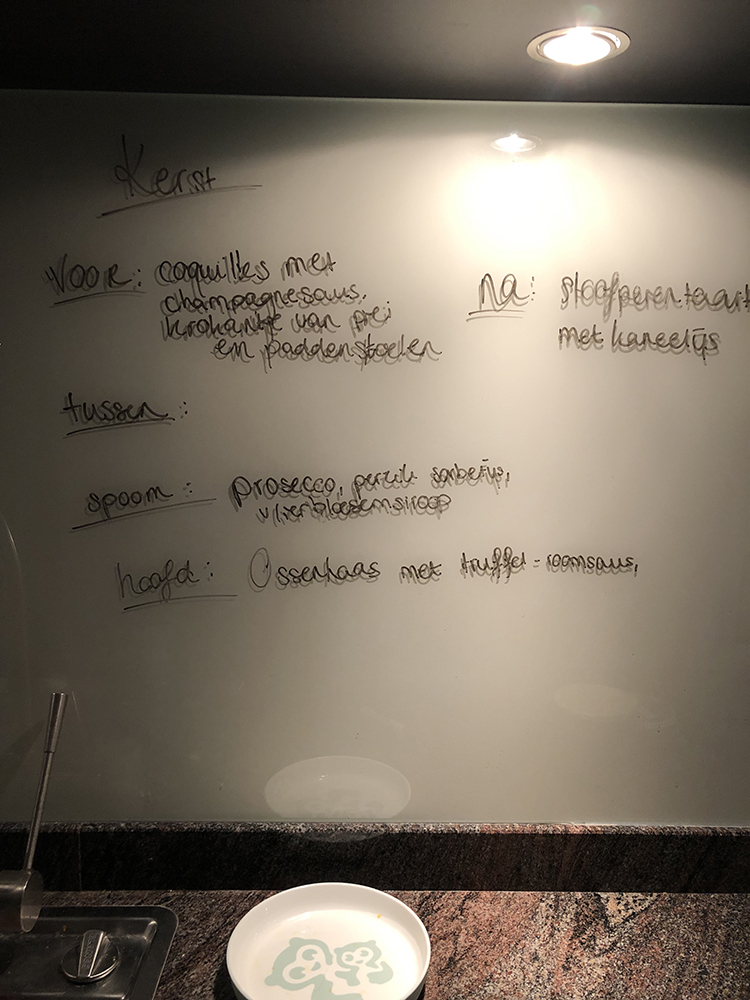 Kerst
Voor: coquilles met
champagnesaus,
krokantje van prei
en paddenstoelen
na: stoofperentaart
met kaneelijs
tussen:
spoom: prosecco, perzik sorbetijs,
vlierbloesemsiroop
hoofd: Ossenhaas met truffel-roomsaus,